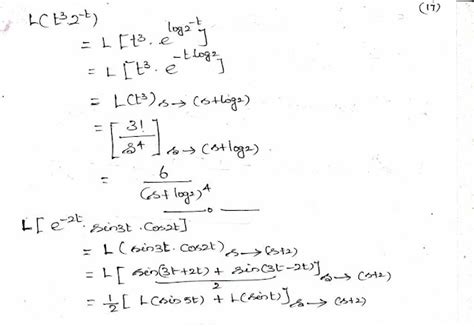 (17)
L(t³2⁻ᵗ)
= L[t³. e^{log2^{-t}}]
= L[t³. e^{-t log2}]
= L(t³)ₛ → (s+log2)
= [3!/s⁴]ₛ → (s+log2)
= 6/(s+log2)⁴
L[e^{-2t}. sin3t. cos2t]
= L(sin3t. cos2t)ₛ → (s+2)
= L[(sin(3t+2t) + sin(3t-2t))/2]ₛ → (s+2)
= 1/2 [L(sin5t) + L(sint)]ₛ → (s+2)